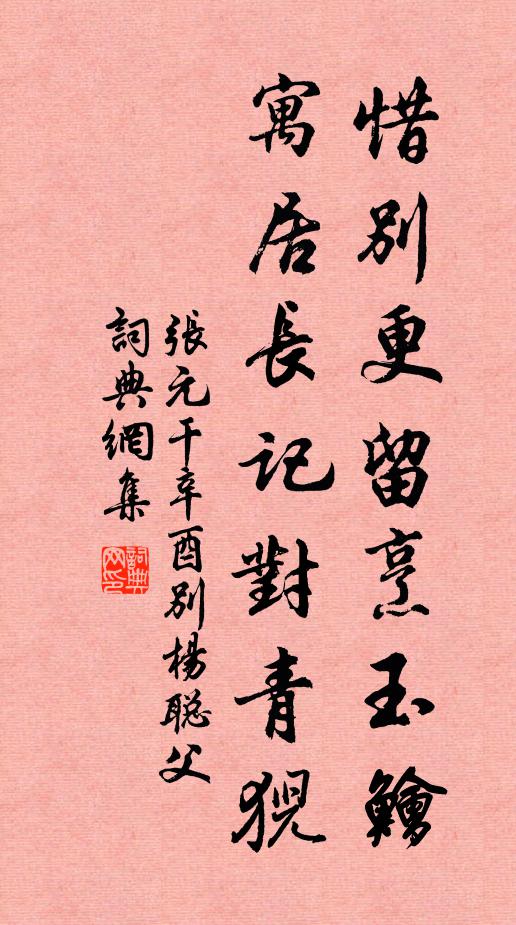 惜別更留烹玉鱠
寓居長記對青猊
張元干辛酉別楊聡父
詞典網集
詞典
网印